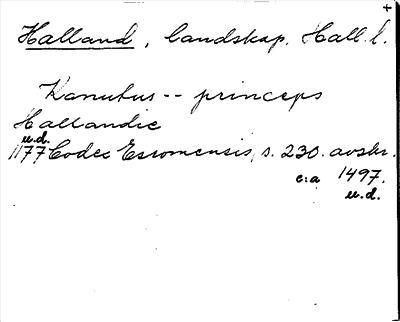 +
Halland, landskap. Hall. l.
Kanutus -- princeps
Hallandie
u.d.
1177 Codec Esromensis, s. 230. avskr.
c:a 1497.
u.d.